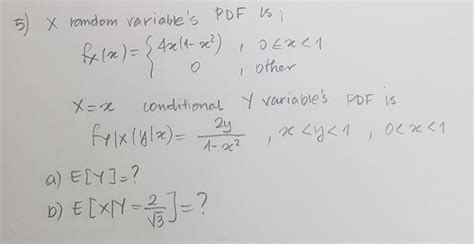 5) X random variable's PDF is;
fx(x) = { 4x(1-x²) , 0≤x<1
0 , other
X=x conditional Y variable's PDF is
fY|X(y|x) = 2y / 1-x² , x<y<1 , 0<x<1
a) E[Y]=?
b) E[X|Y = 2/√3]=?